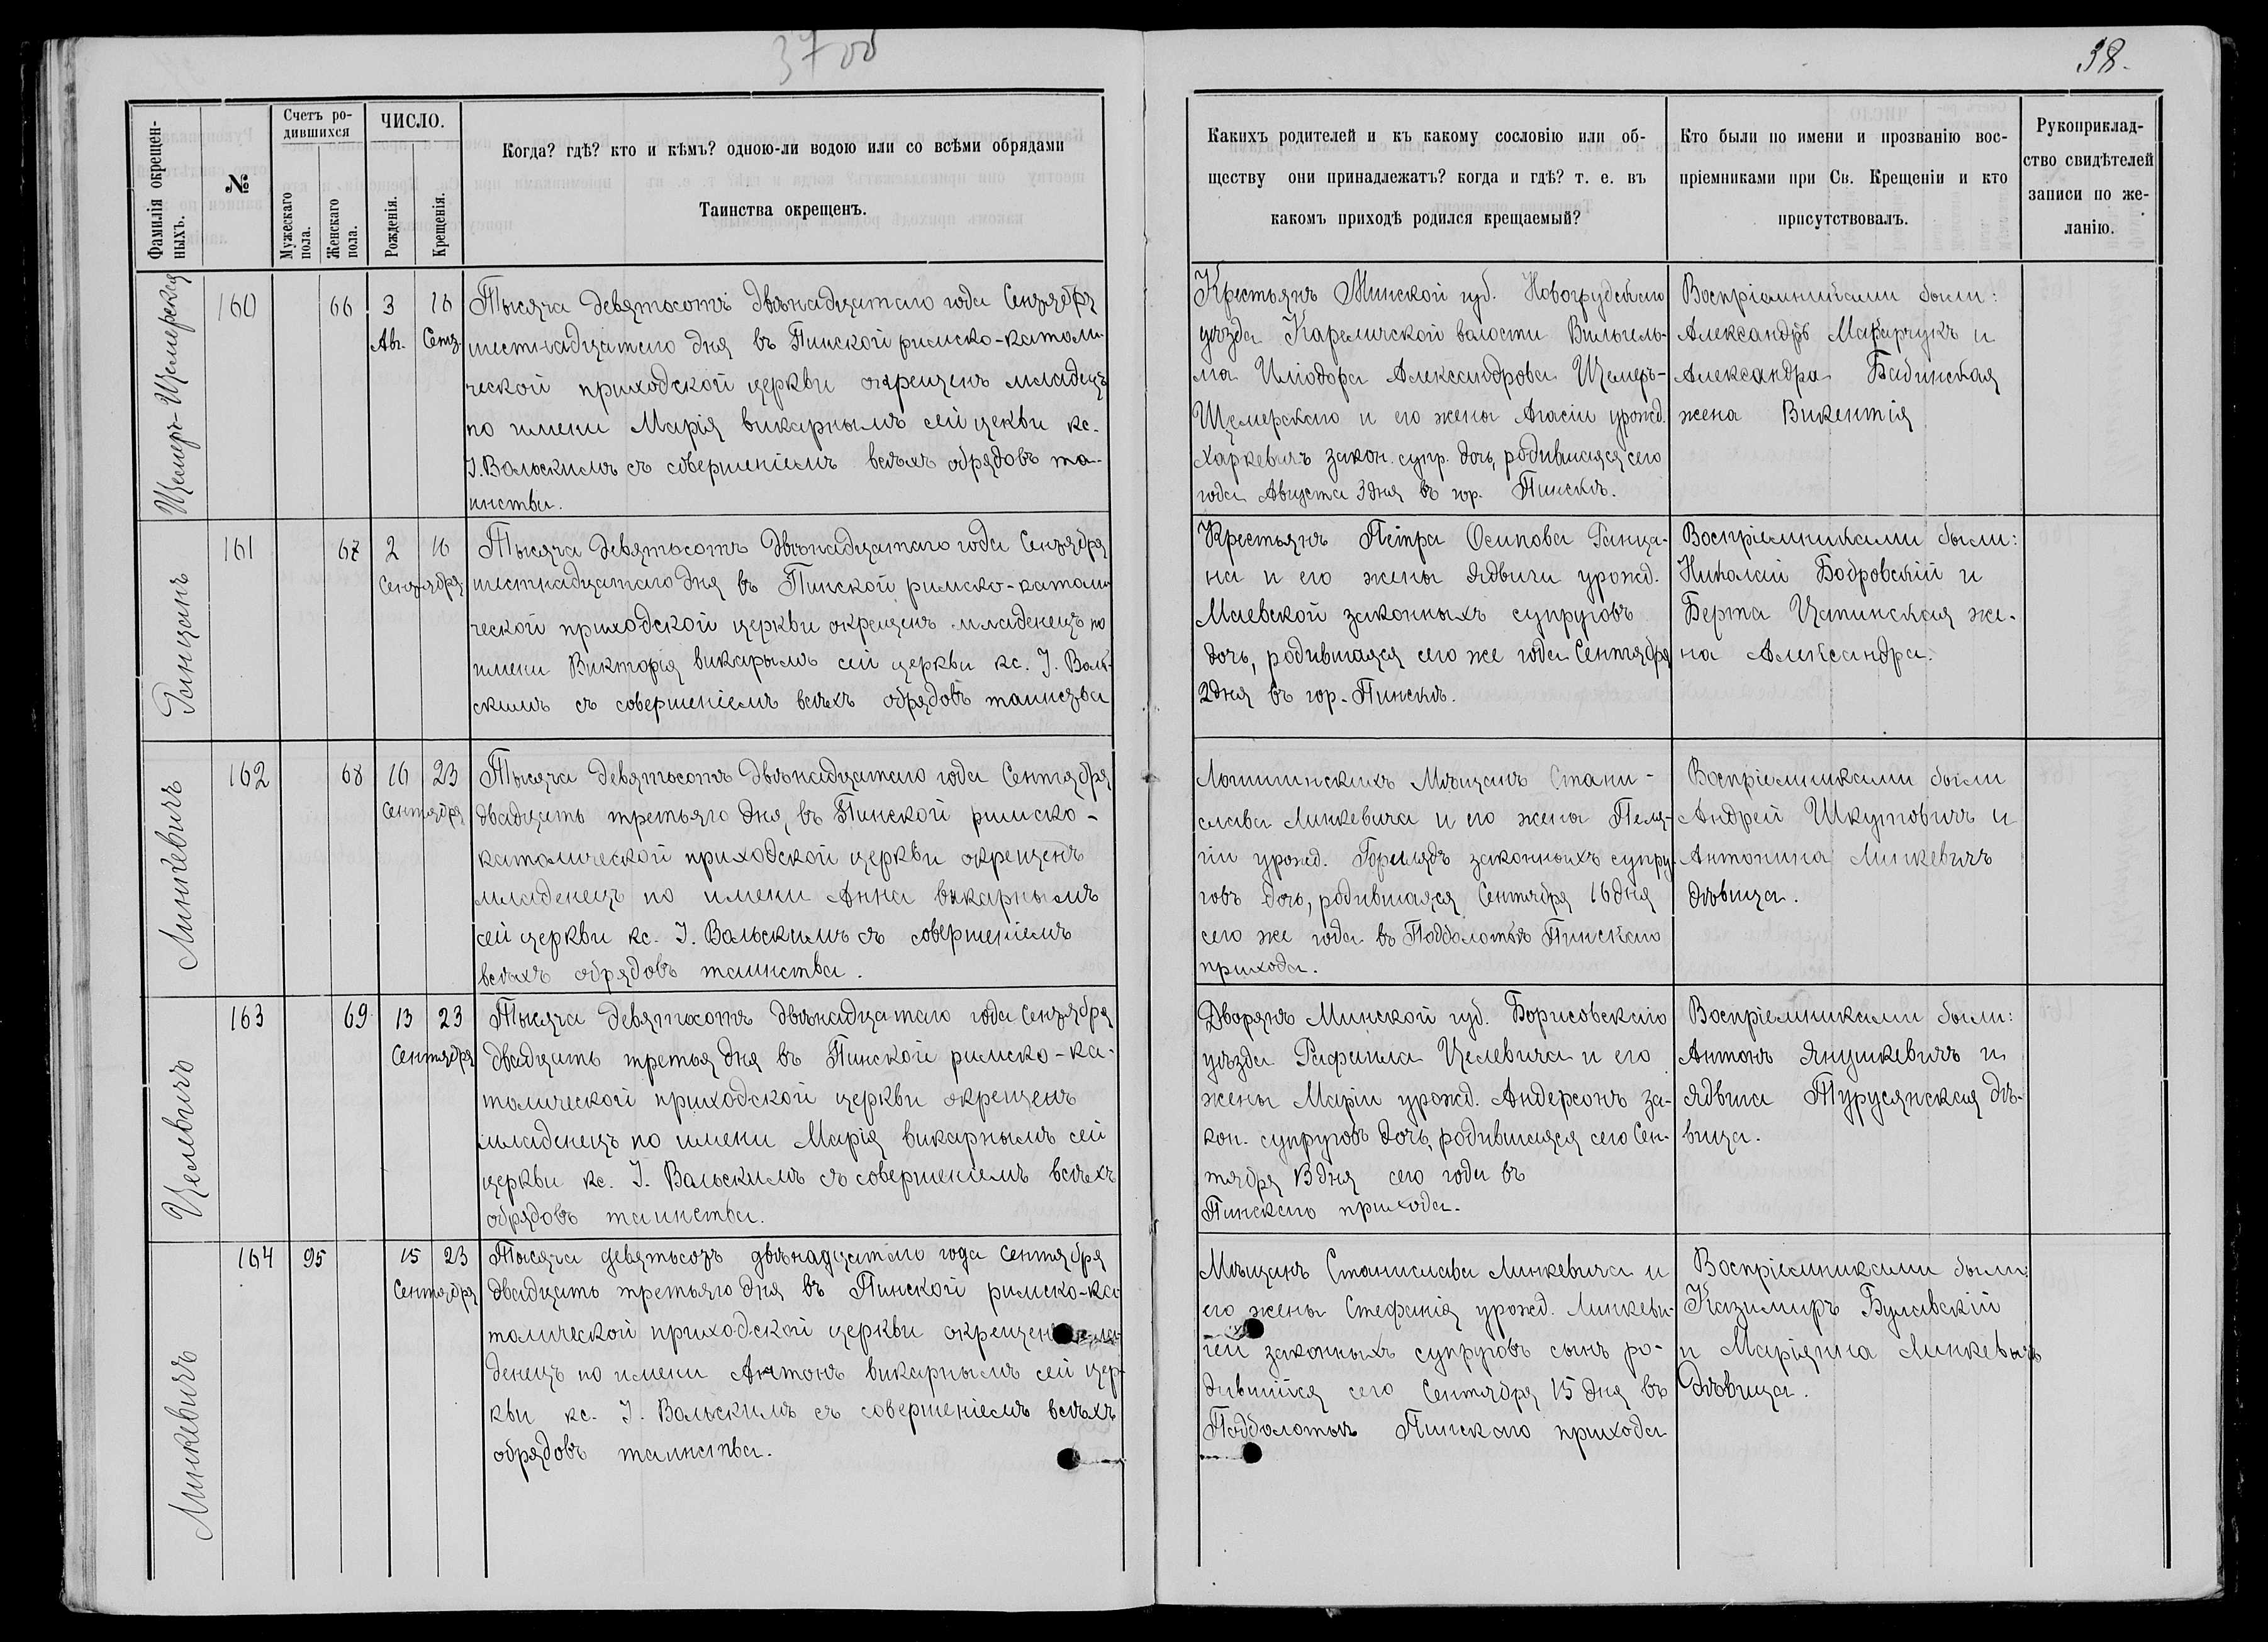 37 об
38.
Фамилія окрещен-
ныхъ.
№
Счетъ ро-
дившихся
Мужескаго
пола.
Женскаго
пола.
ЧИСЛО.
Рожденія.
Крещенія.
Когда? гдѣ? кто и кѣмъ? одною-ли водою или со всѣми обрядами
Таинства окрещенъ.
Какихъ родителей и къ какому сословію или об-
ществу они принадлежатъ? когда и гдѣ? т. е. въ
какомъ приходѣ родился крещаемый?
Кто были по имени и прозванію вос-
пріемниками при Св. Крещеніи и кто
присутствовалъ.
Рукоприклад-
ство свидѣтелей
записи по же-
ланію.
Щемеръ-Щемерская
160
66
3
Авг.
16
Сент.
Тысяча девятьсотъ двѣнадцатаго года Сентября
шестнадцатаго дня въ Пинской римско-католи-
ческой приходской церкви окрещенъ младенецъ
по имени Марія викарнымъ сей цекви кс.
І. Вольскимъ съ совершеніемъ всѣхъ обрядовъ та-
инства.
Крестьянъ Минской губ. Новогрудскаго
уѣзда Кареличской волости Вильгель-
ма Иліодора Александрова Щемеръ-
Щемерскаго и его жены Агасіи урожд.
Харкевичъ закон. супр. дочь, родившаяся сего
года Августа 3 дня въ гор. Пинскѣ.
Воспріемниками были:
Александръ Макарчукъ и
Александра Бабинская
жена Викентія
Ганцанъ
161
67
2
16
Сентября
Тысяча девятьсотъ двѣнадцатаго года Сентября
шестнадцатаго дня въ Пинской римско-католи
ческой приходской церкви окрещенъ младенецъ по
имени Викторія викарымъ сей церкви кс. І. Воль-
скимъ съ совершеніемъ всѣхъ обрядовъ таинства
Крестьянъ Петра Осипова Ганца-
на и его жены Ядвиги урожд.
Маевской законныхъ супруговъ
дочь, родившаяся сего же года Сентября
2 дня въ гор. Пинскѣ.
Воспріемниками были:
Николай Бобровскій и
Берта Цапинская же-
на Александра.
Линкевичъ
162
68
16
23
Сентября
Тысяча девятьсотъ двѣнадцатаго года Сентября
двадцать третьяго дня, въ Пинской римско-
католической приходской церкви окрещенъ
младенецъ по имени Анна викарнымъ
сей церкви кс. І. Вольскимъ съ совершеніемъ
всѣхъ обрядовъ таинства.
Логишинскихъ Мѣщанъ Стани-
слава Линкевича и его жены Пела-
гіи урожд. законныхъ супру-
говъ дочь, родившаяся Сентября 16 дня
сего же года въ Подболотьѣ Пинскаго
прихода.
Воспріемниками были
Андрей Шкутовичъ и
Антонина Линкевичъ
дѣвица.
Целевичъ
163
69
13
23
Сентября
Тысяча девятьсотъ двѣнадцатаго года Сентября
двадцать третья дня въ Пинской римско-ка-
толической приходской церкви окрещенъ
младенецъ по имени Марія викарнымъ сей
церкви кс. І. Вольскимъ съ совершеніемъ всѣхъ
обрядовъ таинства.
Дворянъ Минской губ. Борисовскаго
уѣзда Рафаила Целевича и его
жены Маріи урожд. Андерсонъ за-
кон. супруговъ дочь, родившаяся сего Сен-
тября 13 дня сего года въ
Пинскаго прихода.
Воспріемниками были:
Антонъ Янушкевичъ и
Ядвига Турусянская дѣ-
вица.
Линкевичъ
164
95
15
23
Сентября
Тысяча девятьсотъ двѣнадцатаго года Сентября
двадцать третьяго дня въ Пинской римско-ка
толической приходской церкви окрещенъ мла-
денецъ по имени Антонъ викарнымъ сей цер-
кви кс. І. Вольскимъ съ совершеніемъ всѣхъ
обрядовъ таинства.
Мѣщанъ Станислава Линкевича и
его жены Стефанія урожд. Линкеви-
чей законныхъ супруговъ сынъ ро-
дившійся сего Сентября 15 дня въ
Подболотьѣ Пинскаго прихода
Воспріемниками были:
Казимиръ Булавскій
и Маріянна Линкевичъ
дѣвица.